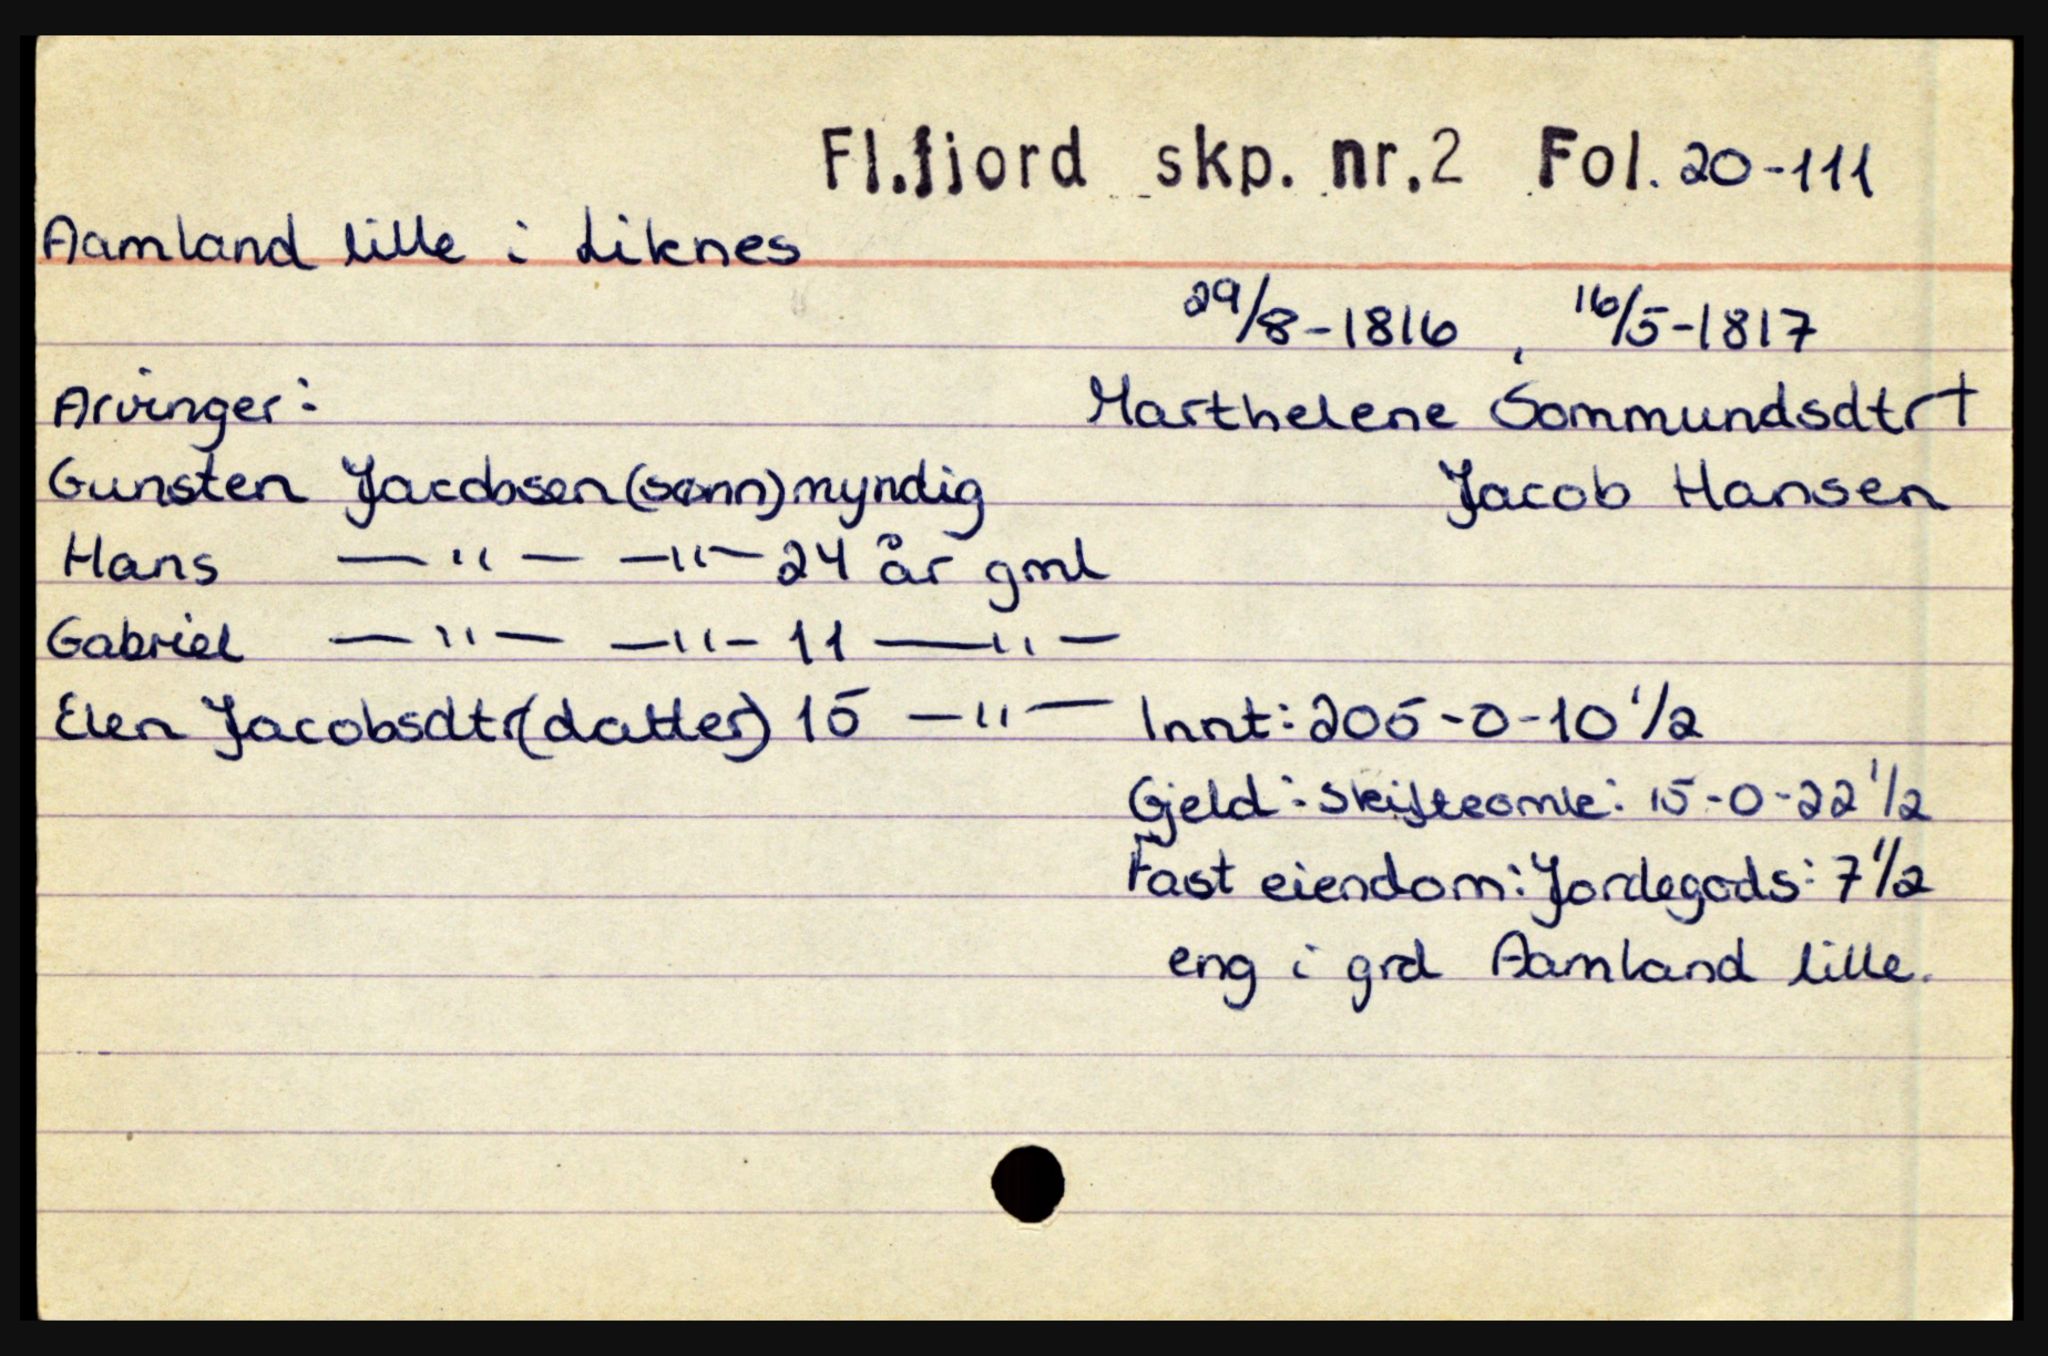 Fl.fjord skp. nr.2 Fol. 20-111
Aamland lille i Liknes
29/8-1816, 16/5-1817
Arvinger: Marthelene Sommundsdtr †
Gunsten Jacobsen (sønn) myndig Jacob Hansen
Hans —"— —"— 24 år gml
Gabriel —"— —"— 11 —"—
Elen Jacobsdtr (datter) 15 —"— Innt: 205-0-10 1/2
Gjeld: skifteomk: 15-0-22 1/2
Fast eiendom: Jordegods: 7 1/2
eng i grd Aamland lille.